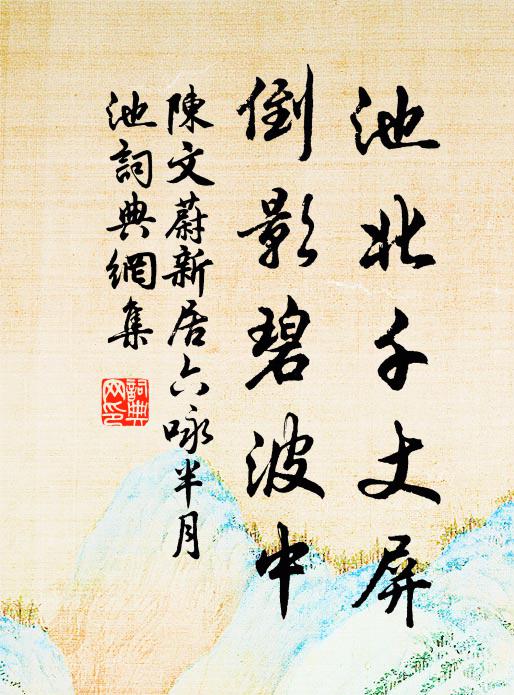 池北千丈屏
倒影碧波中
陳文蔚新居六咏半月
池詞典網集
詞典
网印